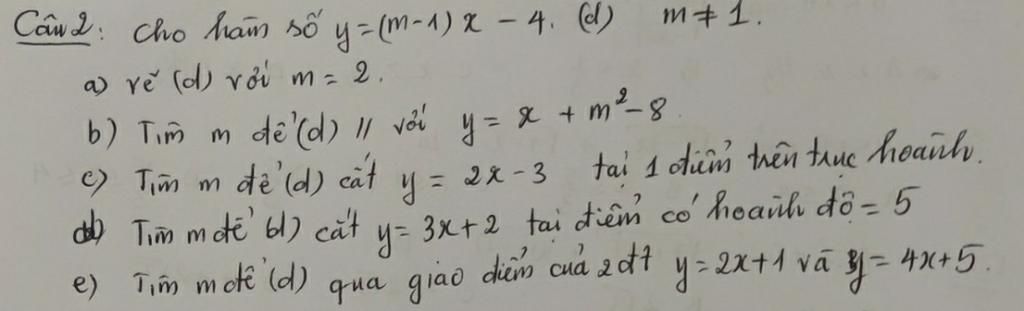 Câu 2: Cho hàm số y=(m-1)x-4. (d) m≠1.
a) vẽ (d) với m=2.
b) Tìm m để (d) // với y=x+m²-8
c) Tìm m để (d) cắt y=2x-3 tại 1 điểm trên trục hoành.
d) Tìm m để (d) cắt y=3x+2 tại điểm có hoành độ=5
e) Tìm m để (d) qua giao điểm của 2 đt y=2x+1 và y=4x+5.